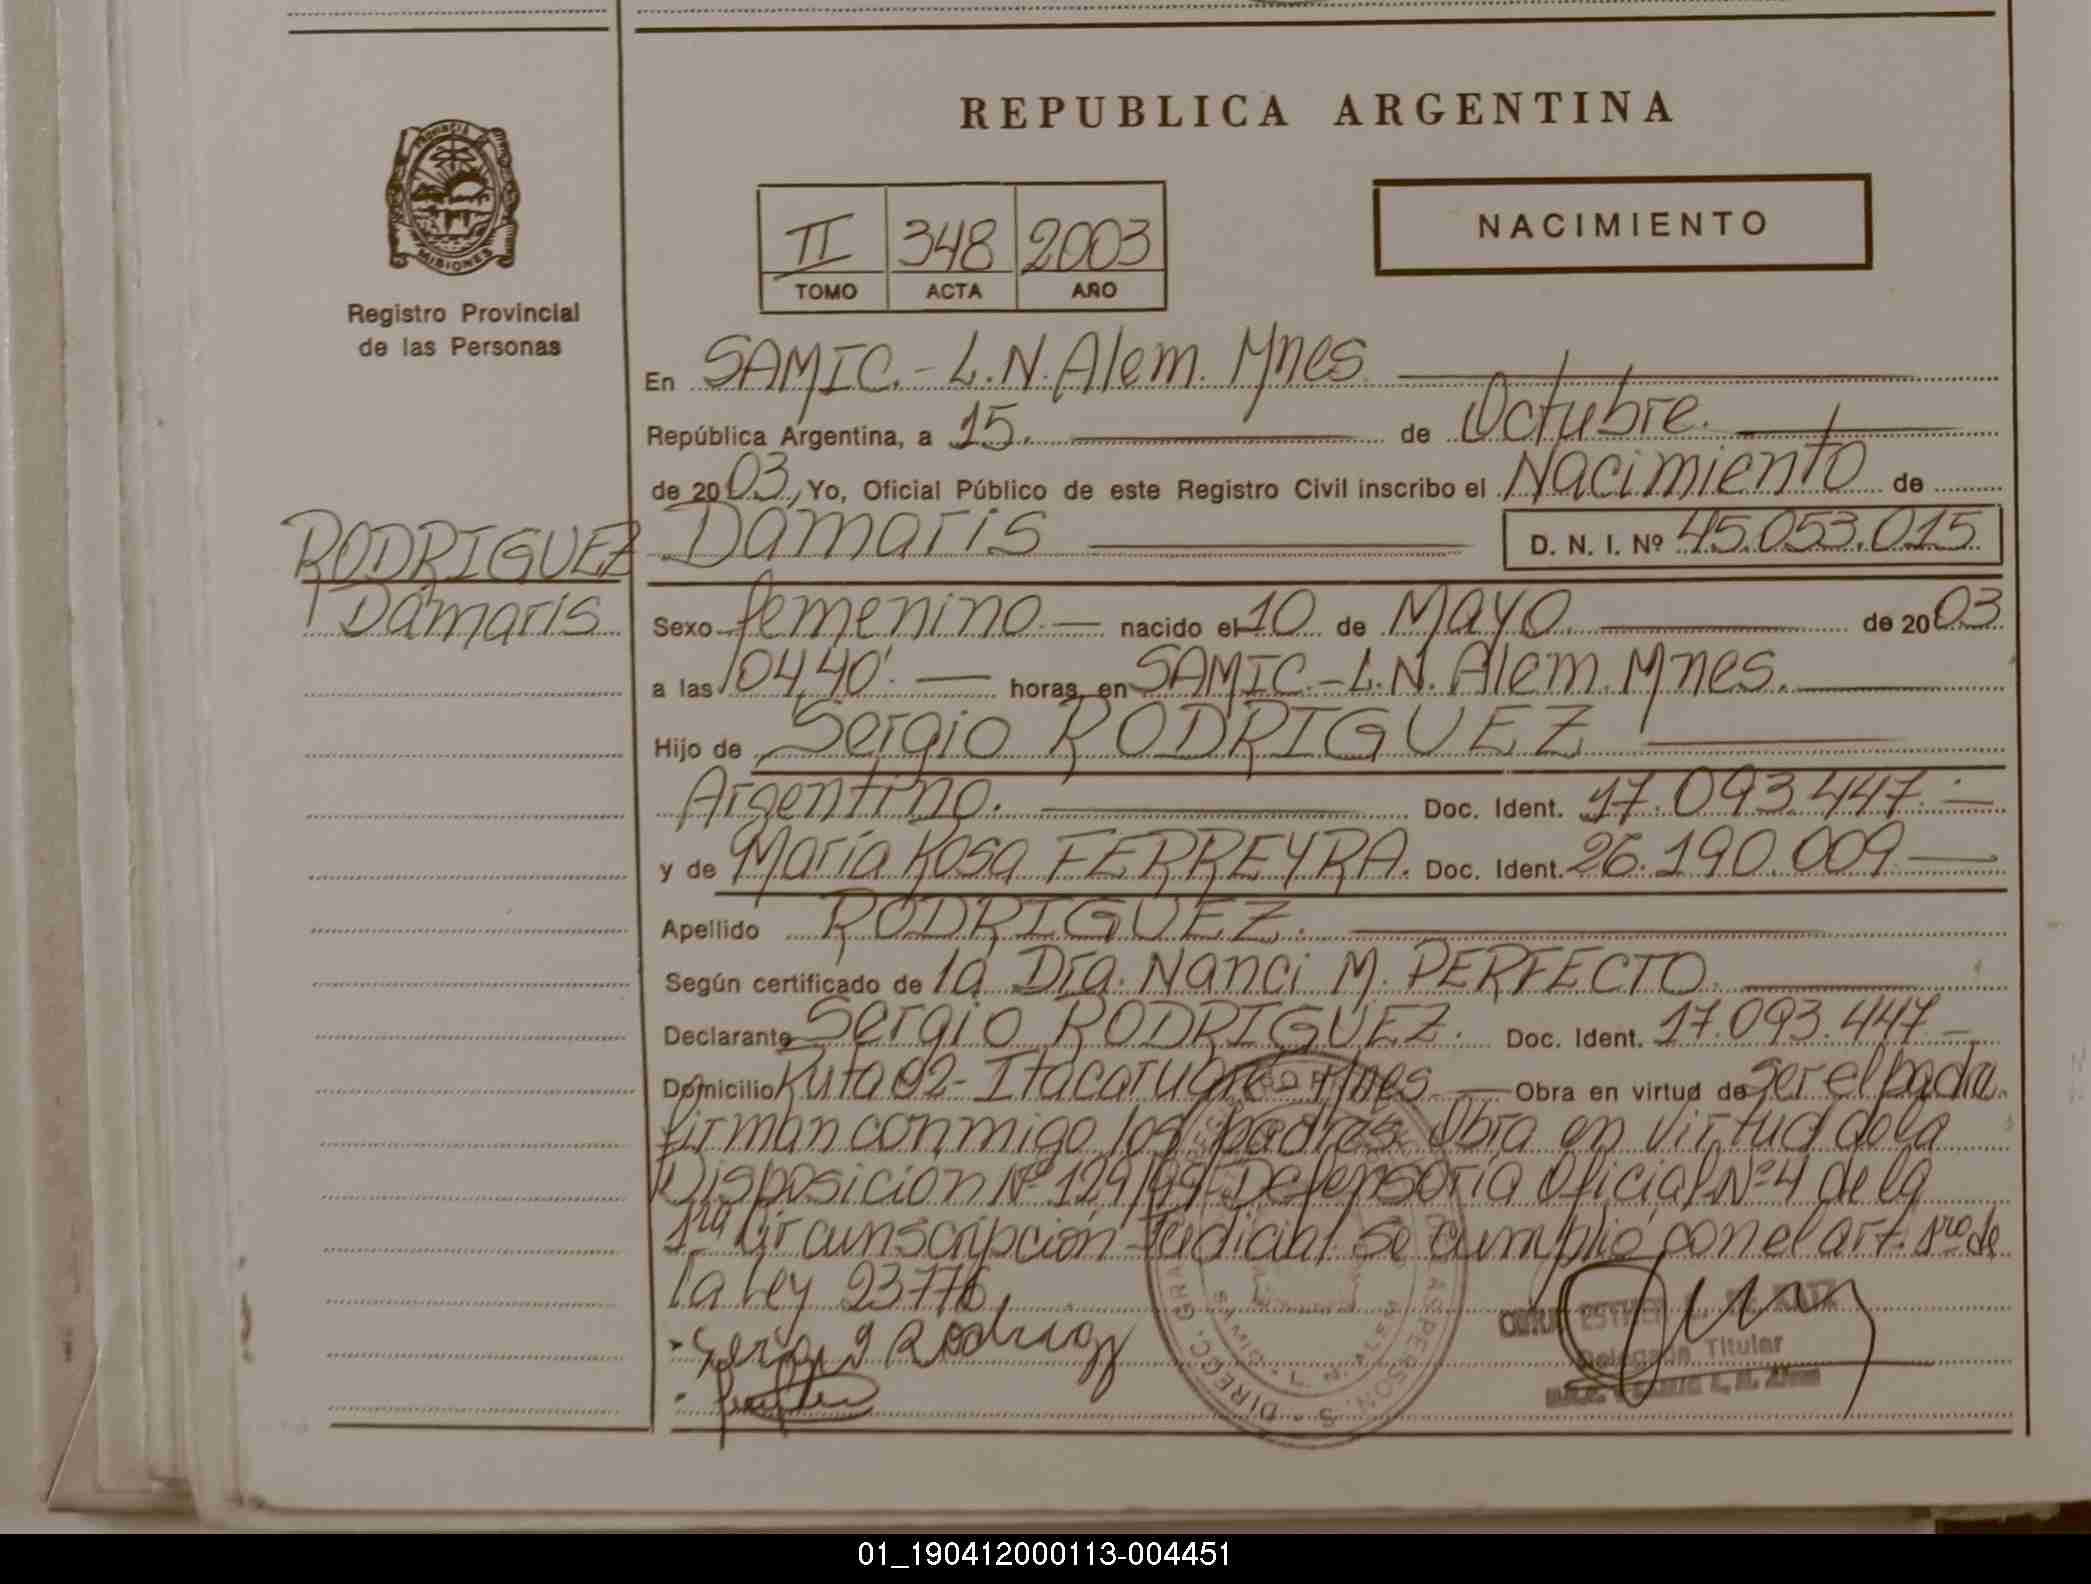 REPUBLICA ARGENTINA
PROVINCIA DE
MISIONES
Registro Provincial
de las Personas
NACIMIENTO
II 348 2003
TOMO ACTA AÑO
En SAMIC.- L.N. Alem. Mnes
República Argentina, a 15. de Octubre.
de 2003, Yo, Oficial Público de este Registro Civil inscribo el Nacimiento de
RODRIGUEZ
Damaris
Damaris D. N. I. Nº 45.053.015
Sexo femenino.- nacido el 10 de MAYO. de 2003
a las 04,40'. horas, en SAMIC.-L.N. Alem. Mnes.
Hijo de Sergio RODRIGUEZ
Argentino. Doc. Ident. 17.093.447.-
y de María Rosa FERREYRA. Doc. Ident. 26.190.009.-
Apellido RODRIGUEZ.
Según certificado de la Dra. Nanci M. PERFECTO.
Declarante Sergio RODRIGUEZ. Doc. Ident. 17.093.447-
Domicilio Ruta 02- Itacaruaré - Mnes. Obra en virtud de ser el padre.
firman conmigo los padres. Obra en virtud de la
Disposición Nº 129/99 Defensoría Oficial Nº 4 de la
1ra Circunscripción Judicial. Se cumplió con el art. 1ro de
la Ley 23776.
Sergio Rodriguez
ESTHER
Delegada Titular
01_190412000113-004451